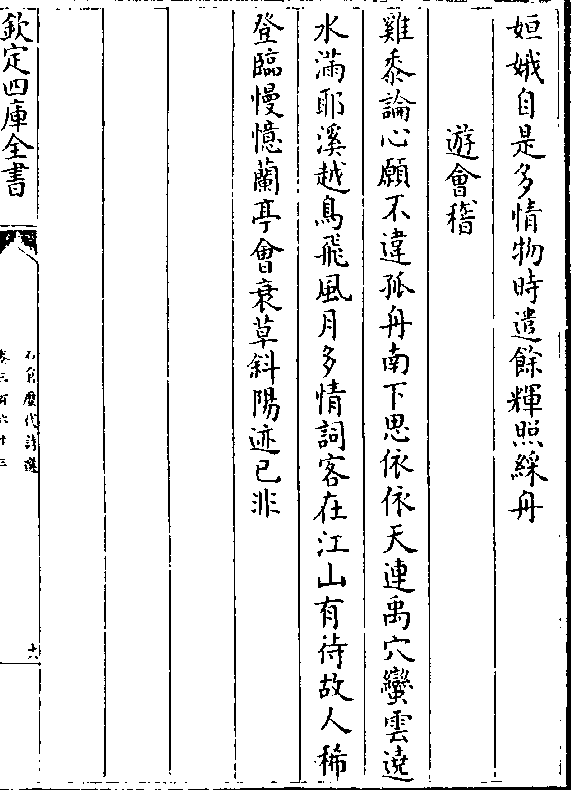 姮娥自是多情物時遣餘輝照綵舟
遊會稽
雞黍論心願不違孤舟南下思依依天連禹穴蠻雲遶
水滿耶溪越鳥飛風月多情詞客在江山有待故人稀
登臨慢憶蘭亭會衰草斜陽迹已非
欽定四庫全書
石倉歷代詩選
卷三百六十三
十六